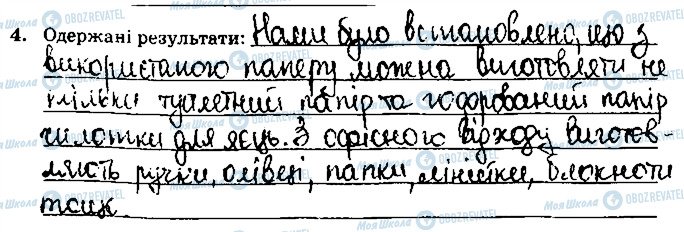 4. Одержані результати: Нами було встановлено, що з
використаного паперу можна виготовляти не
тільки туалетний папір та гофрований папір
лотки для яєць. З офісного відходу виготов-
ляють ручки, олівці, папки, лінійки, блокноти